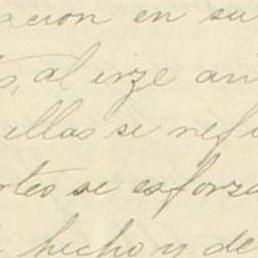 acion en su
al irze
ellas se refi
rtes se esforza
hecho y de